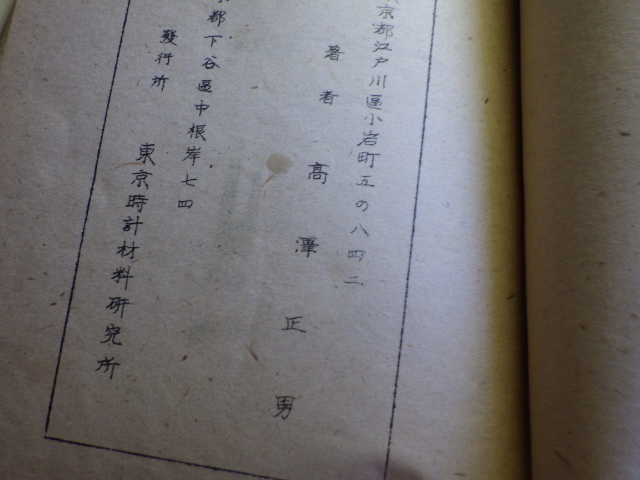 京都江戸川區小岩町五の八四二
著者　高澤正男
都下谷區中根岸七四
發行所　東京時計材料研究所